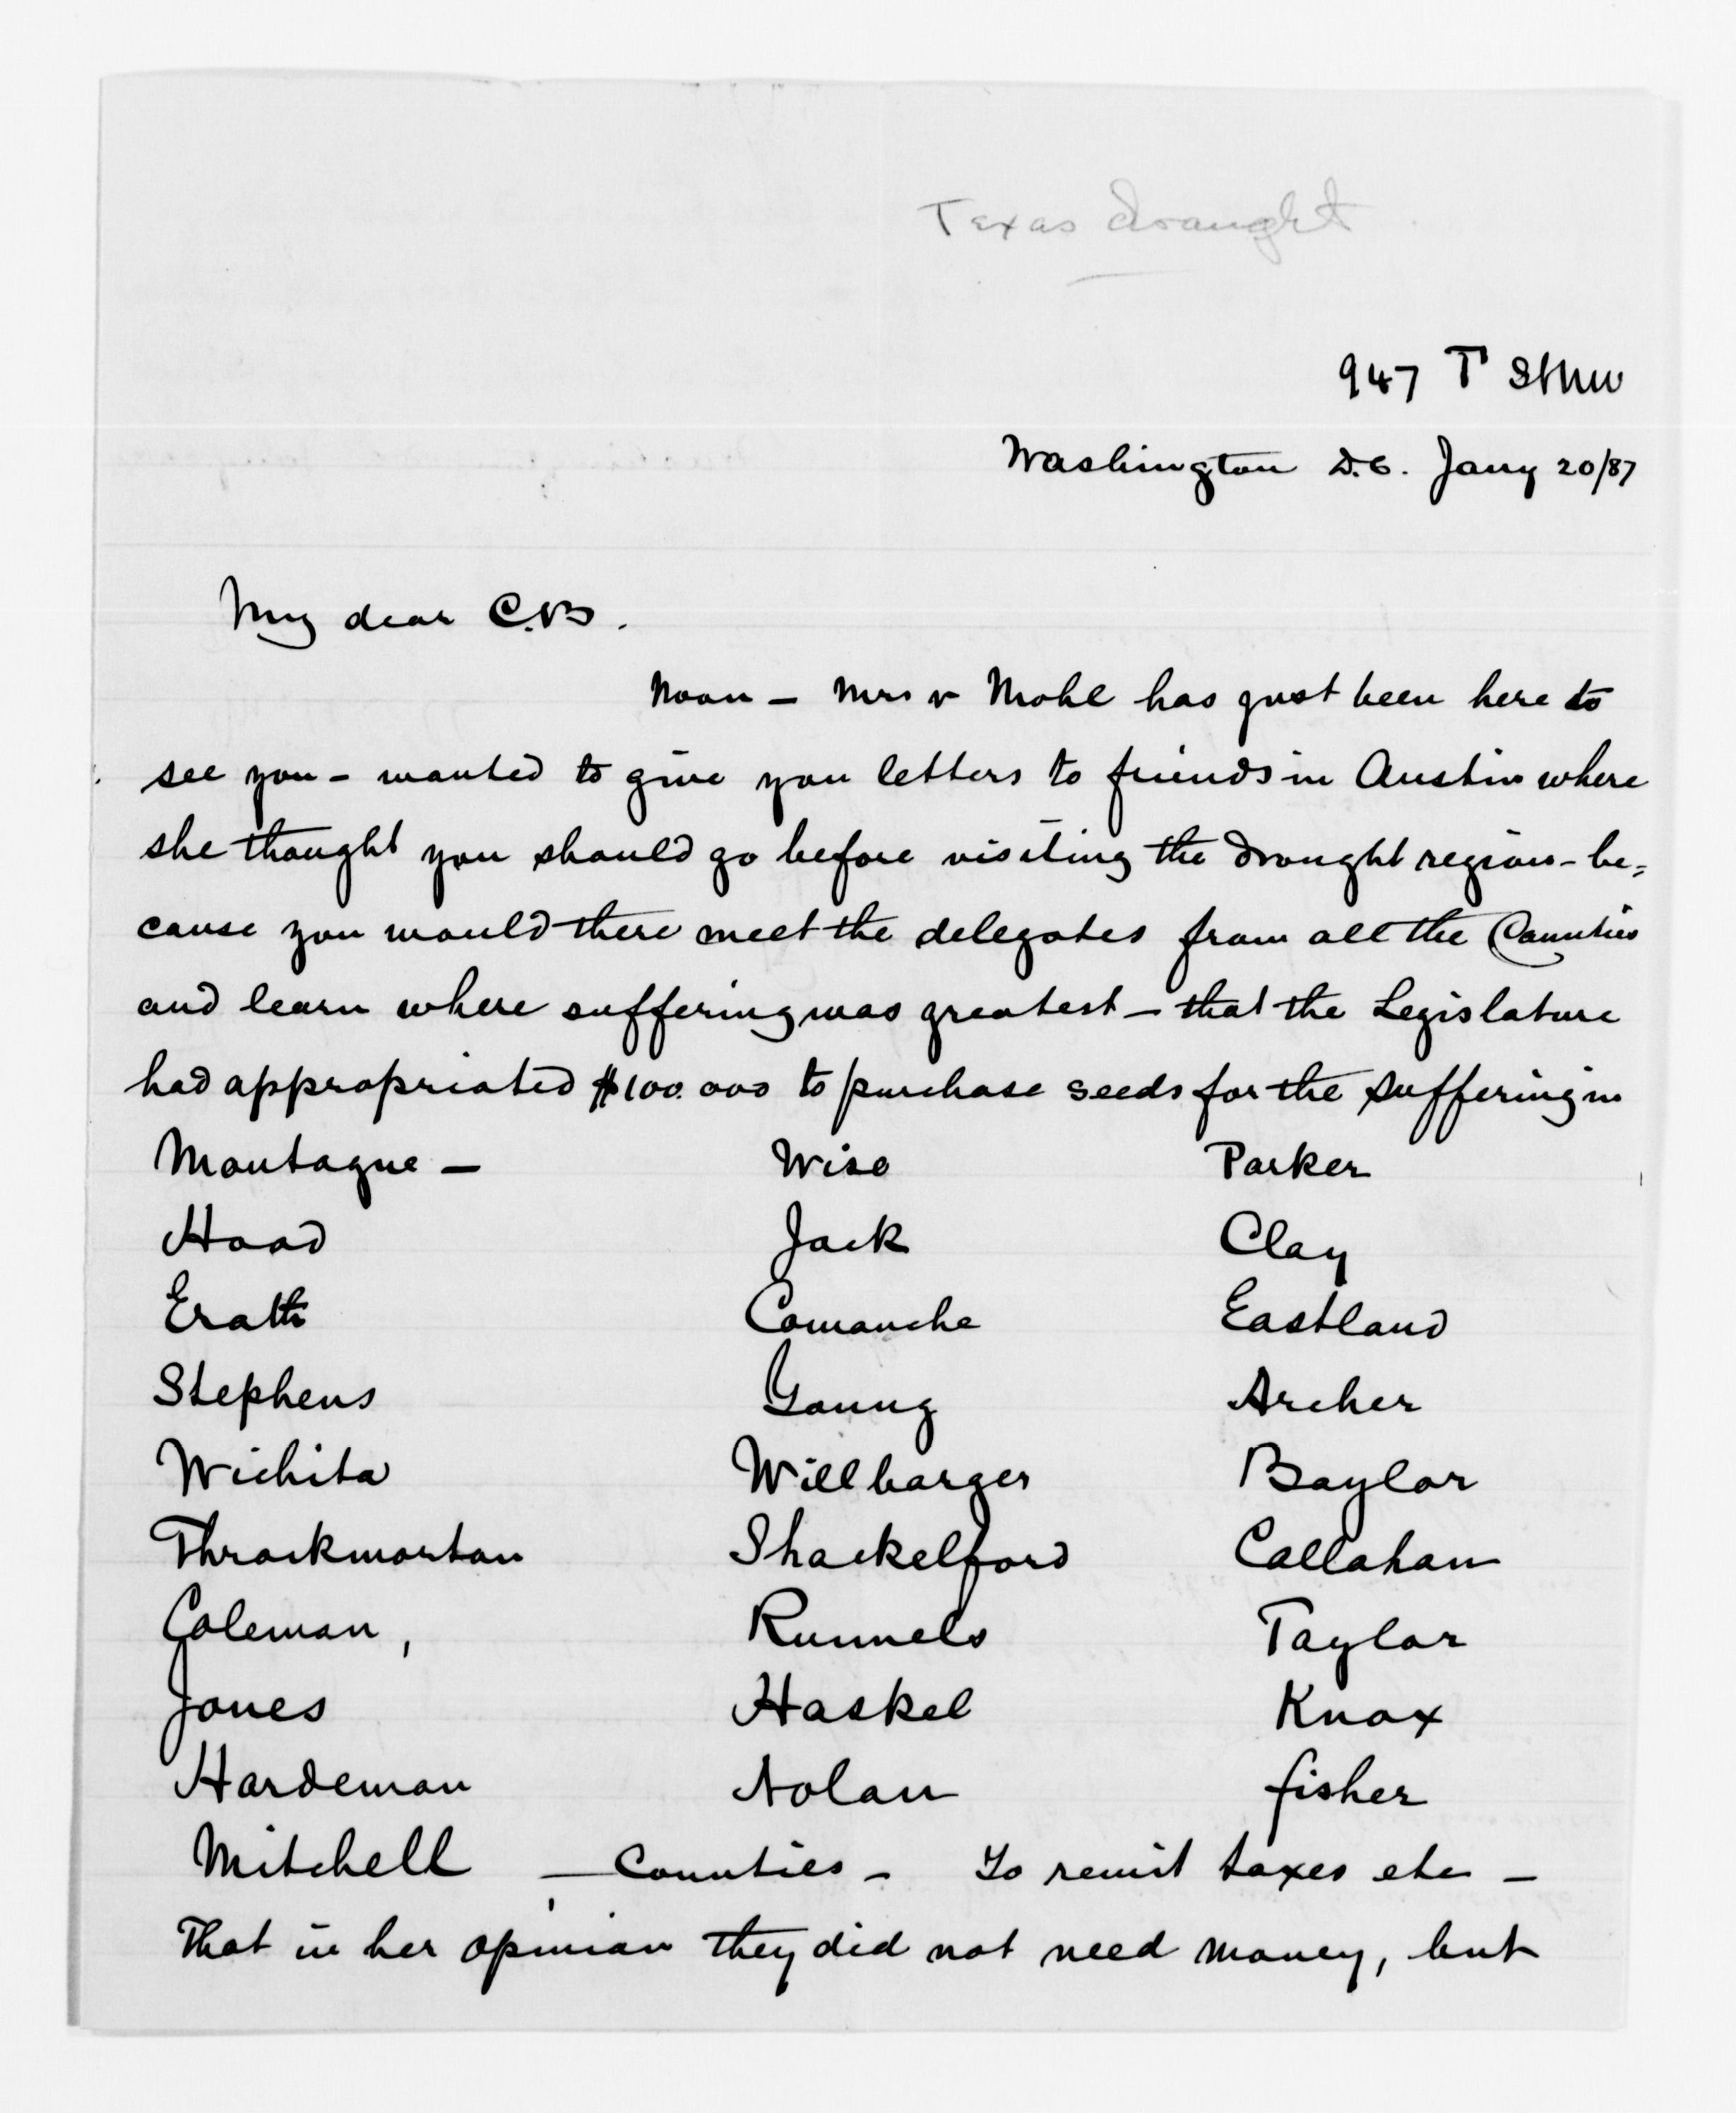 Texas drought
947 T St NW
Washington D.C. Jany 20/87
My dear C.B.
Noon - Mrs v Mohl has just been here to
see you - wanted to give you letters to friends in Austin where
she thought you should go before visiting the drought region - be=
cause you would there meet the delegates from all the Counties
and learn where suffering was greatest - that the Legislature
had appropriated $100.000 to purchase seeds for the suffering in
Montague - Wise Parker
Hood Jack Clay
Erath Comanche Eastland
Stephens Young Archer
Wichita Willbarger Baylor
Throckmorton Shackelford Callahan
Coleman, Runnels Taylor
Jones Haskel Knox
Hardeman Nolan fisher
Mitchell - Counties - To remit taxes etc -
That in her opinion they did not need money, but